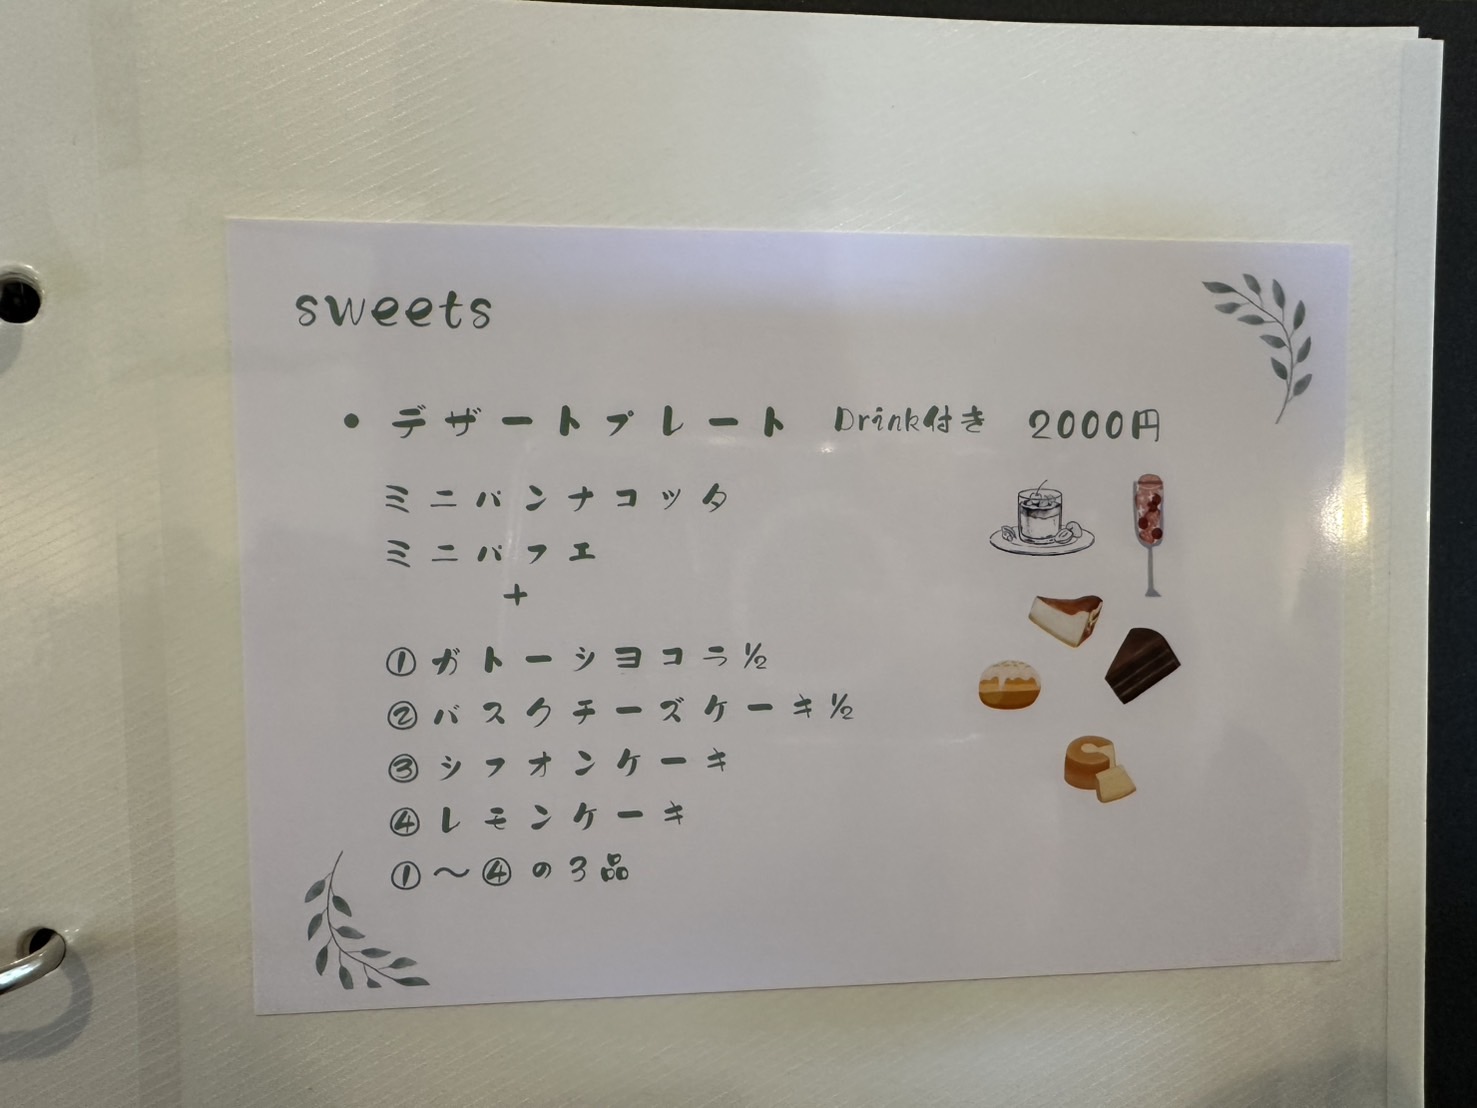 sweets
• デザートプレート Drink付き 2000円
ミニパンナコッタ
ミニパフェ
+
① ガトーショコラ½
② バスクチーズケーキ½
③ シフォンケーキ
④ レモンケーキ
①〜④の3品